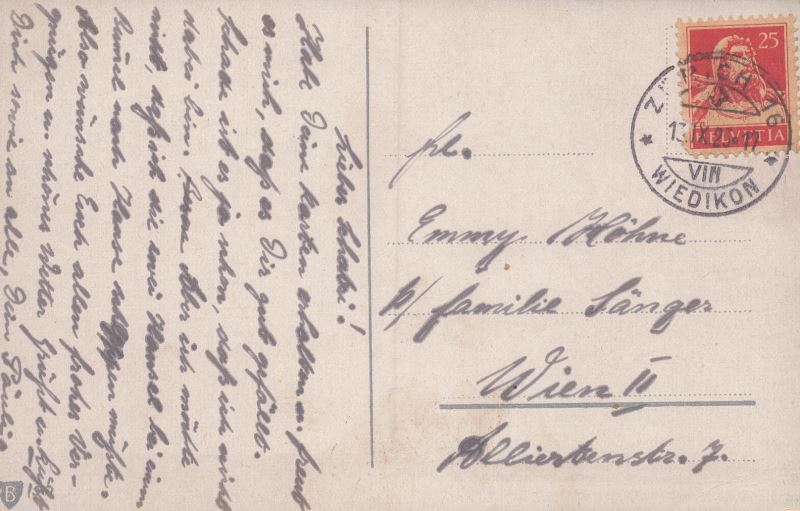 Lieber Schatzi!
Habe Deine Karten erhalten u. freut
es mich, daß es Dir gut gefällt.
Schade ist es ja schon, daß ich nicht
dabei bin. Aber ich möchte
nicht, daß ich die zwei Hansel bei einem
Rümel nach Hause müßte.
Also wünsche Euch allen frohes Ver-
gnügen u. schönes Wetter Grüßt u. küßt
Dich sowie an alle, Dein
Frl.
Emmy Höhne
p/ familie Sänger
Wien II
Alliertenstr. 7.
25
HELVETIA
ZÜRICH 16
13.IX.
VIII
WIEDIKON
B